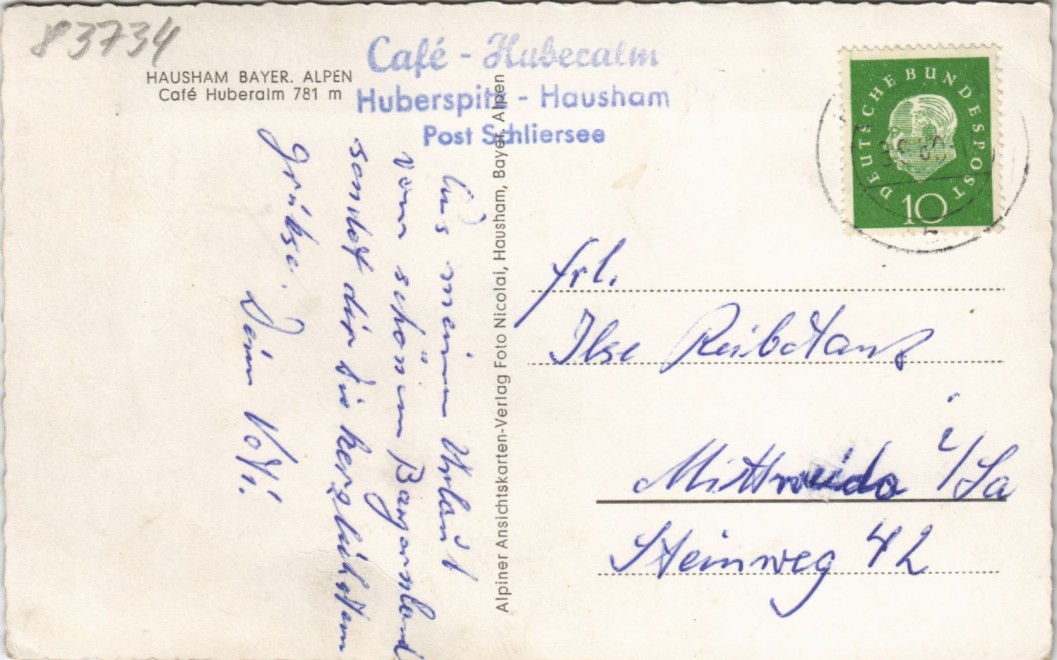 83734
HAUSHAM BAYER. ALPEN
Café Huberalm 781 m
Café - Huberalm
Huberspitz - Hausham
Post Schliersee
DEUTSCHE BUNDESPOST
10
Aus meinem Urlaub
vom schönen Bayernland
sendet dir die herzlichsten
Grüsse.
Dein
Alpiner Ansichtskarten-Verlag Foto Nicolai, Hausham, Bayer. Alpen
Frl.
Ilse Reibetanz
Mittweida i/Sa
Steinweg 42